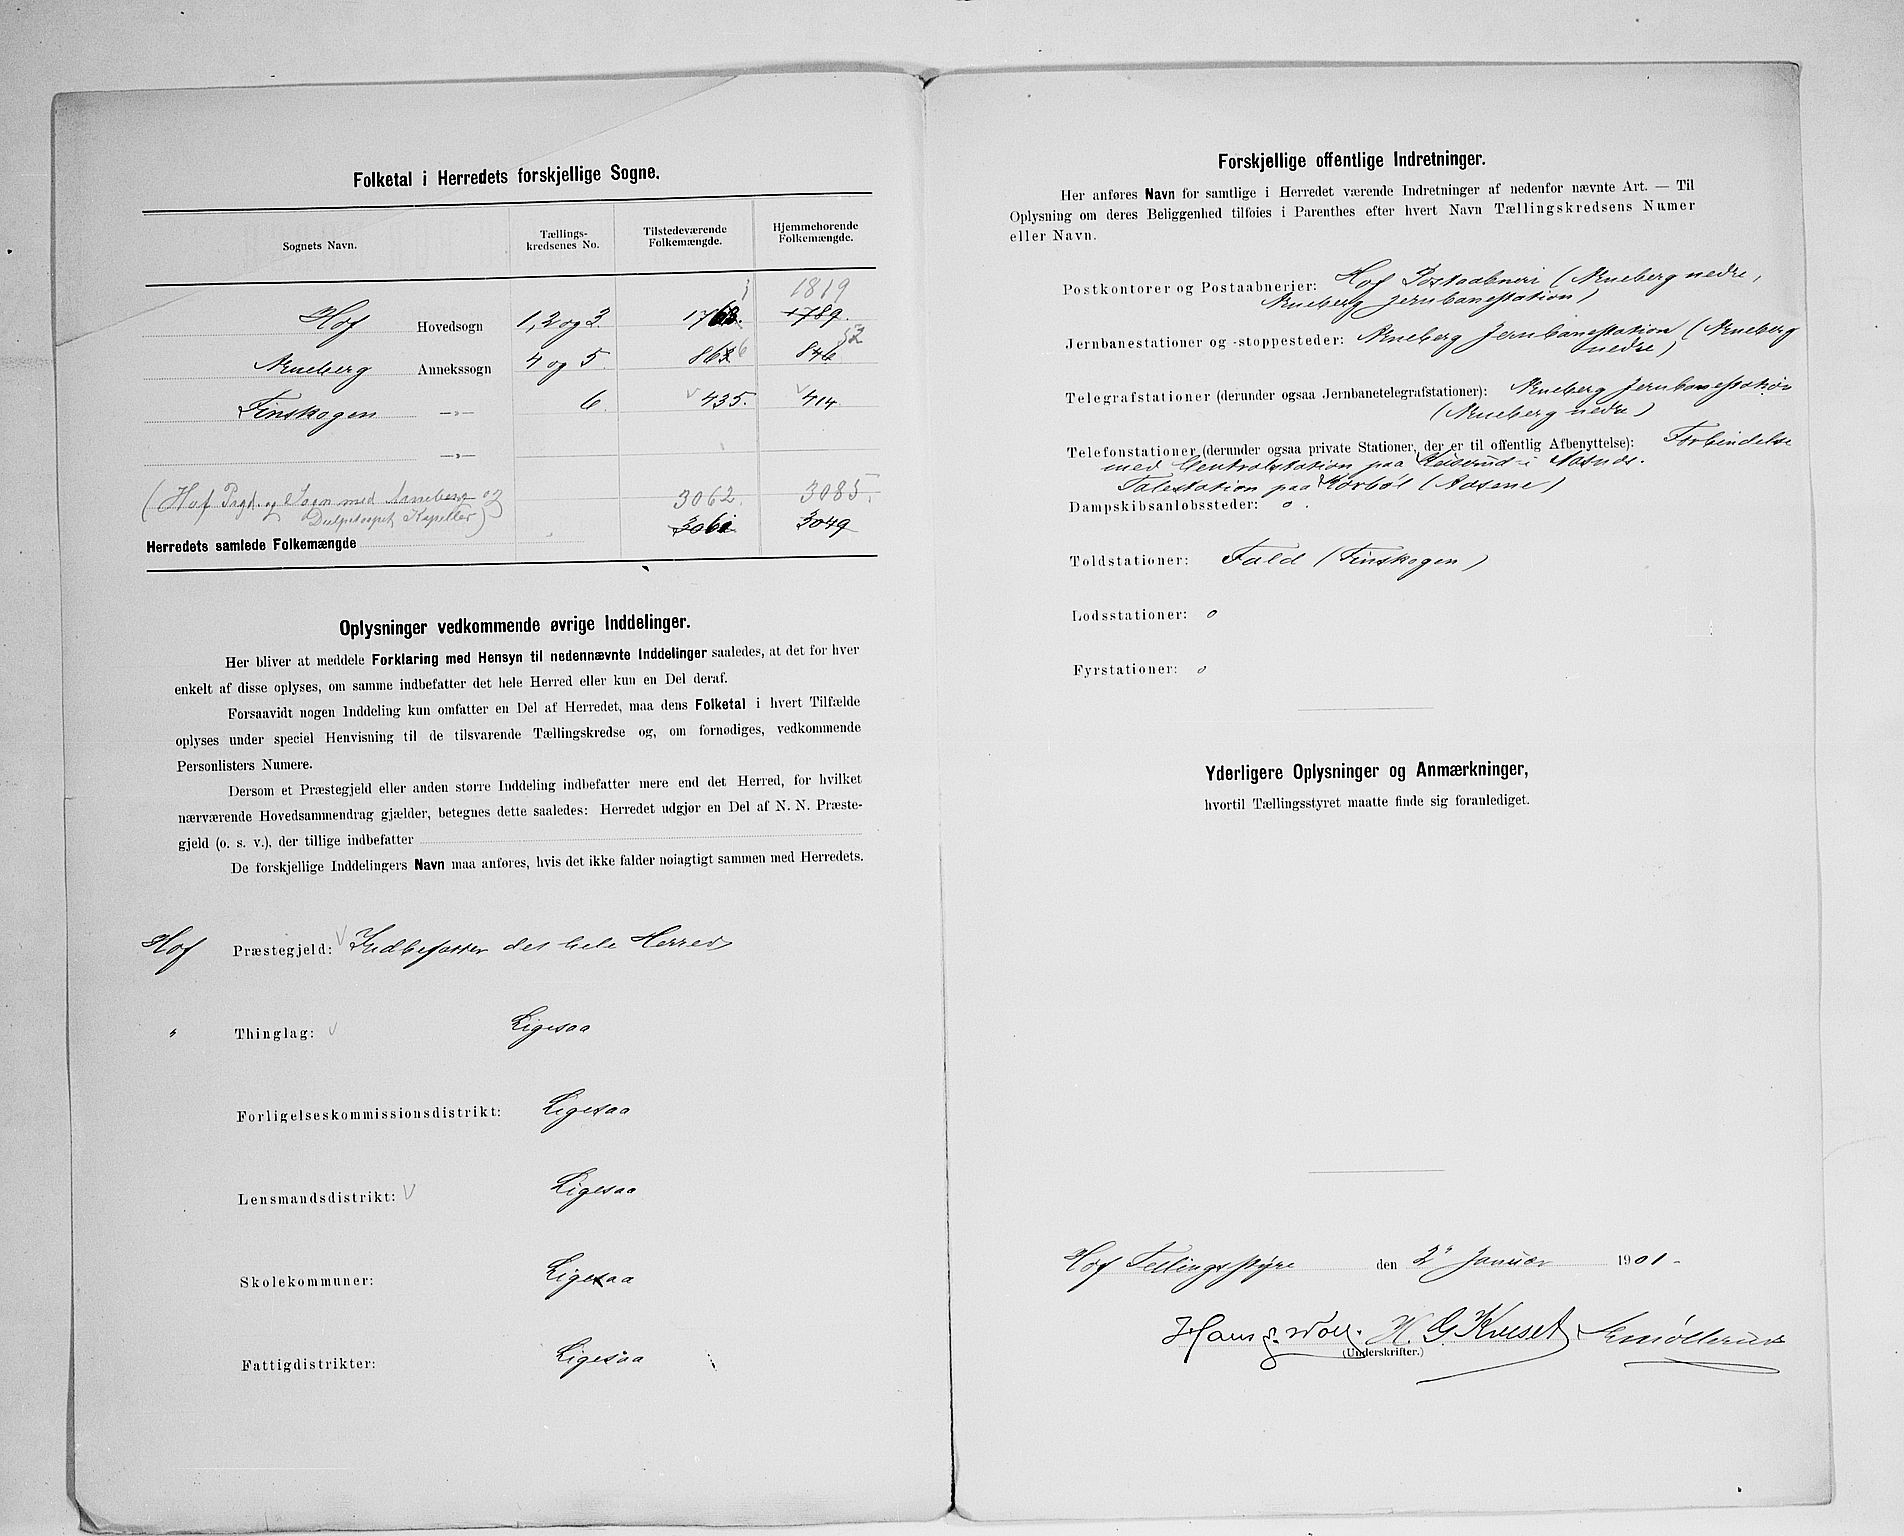 Folketal i Herredets forskjellige Sogne.
Sognets Navn.
Tællings-
kredsenes No.
Tilstedeværende
Folkemængde.
Hjemmehørende
Folkemængde.
1819
Hof Hovedsogn 1, 2 og 3. 1768. 1789.
52
Arneberg Annekssogn 4 og 5. 862 6 846
Finskogen —»— 6. 435. 414
—»—
(Hof Prgd. og Sogn med Arneberg og 3062. 3085.
Kapeller) 3061 3049
Herredets samlede Folkemængde
Oplysninger vedkommende øvrige Inddelinger.
Her bliver at meddele Forklaring med Hensyn til nedennævnte Inddelinger saaledes, at det for hver
enkelt af disse oplyses, om samme indbefatter det hele Herred eller kun en Del deraf.
Forsaavidt nogen Inddeling kun omfatter en Del af Herredet, maa dens Folketal i hvert Tilfælde
oplyses under speciel Henvisning til de tilsvarende Tællingskredse og, om fornødiges, vedkommende
Personlisters Numere.
Dersom et Præstegjeld eller anden større Inddeling indbefatter mere end det Herred, for hvilket
nærværende Hovedsammendrag gjælder, betegnes dette saaledes: Herredet udgjør en Del af N. N. Præste-
gjeld (o. s. v.), der tillige indbefatter
De forskjellige Inddelingers Navn maa anføres, hvis det ikke falder nøiagtigt sammen med Herredets.
Hof Præstegjeld: Indbefatter det hele Herred
" Thinglag: Ligesaa
Forligelseskommissionsdistrikt: Ligesaa
Lensmandsdistrikt: Ligesaa
Skolekommuner: Ligesaa
Fattigdistrikter: Ligesaa
Forskjellige offentlige Indretninger.
Her anføres Navn for samtlige i Herredet værende Indretninger af nedenfor nævnte Art. — Til
Oplysning om deres Beliggenhed tilføies i Parenthes efter hvert Navn Tællingskredsens Numer
eller Navn.
Postkontorer og Postaabnerier: Hof Postaabneri (Arneberg nedre,
Arneberg Jernbanestation)
Jernbanestationer og -stoppesteder: Arneberg Jernbanestation (Arneberg
nedre)
Telegrafstationer (derunder ogsaa Jernbanetelegrafstationer): Arneberg Jernbanestation
(Arneberg nedre)
Telefonstationer (derunder ogsaa private Stationer, der er til offentlig Afbenyttelse): Forbindelse
med Centralstation paa i Aasnes.
Talestation paa (Aasene)
Dampskibsanløbssteder: 0.
Toldstationer: Fald (Finskogen)
Lodsstationer: 0
Fyrstationer: 0
Yderligere Oplysninger og Anmærkninger,
hvortil Tællingsstyret maatte finde sig foranlediget.
Hof Tellingsstyre den 2 Januar 1901.
Hans H. G. Kveset
(Underskrifter.)